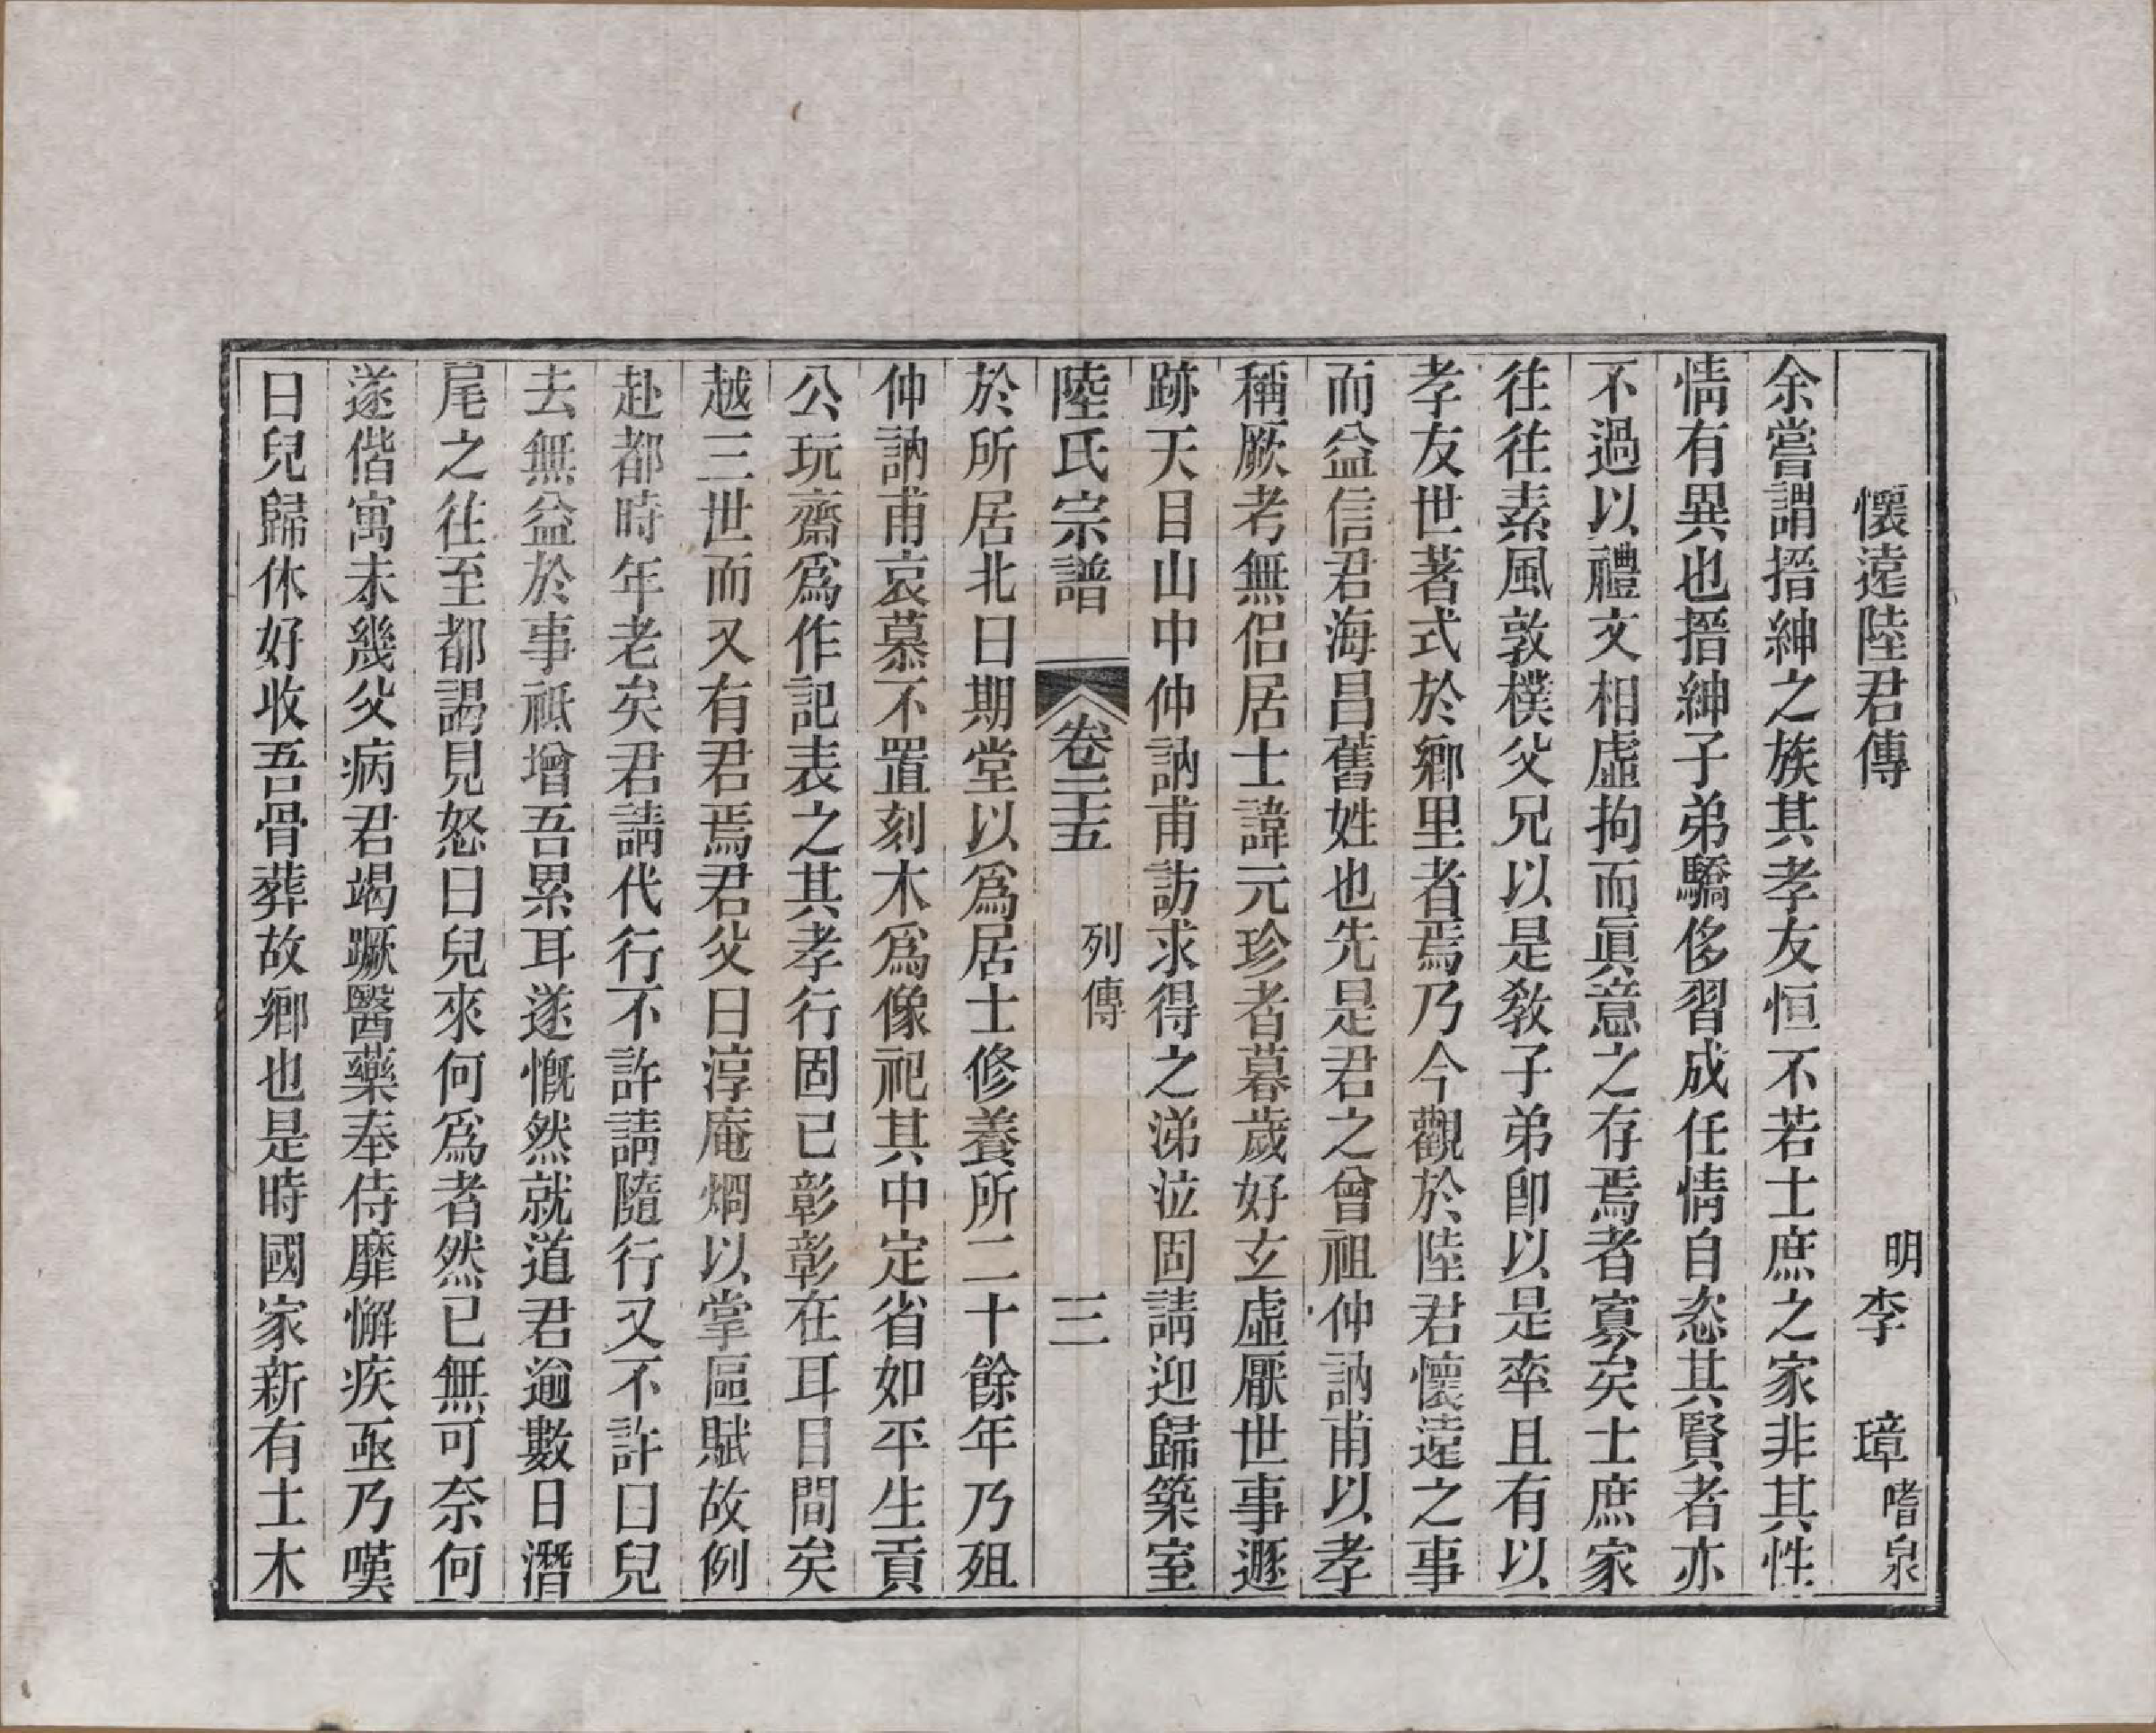 懷遠陸君傳　明李　璋嗜泉
余嘗謂搢紳之族其孝友恒不若士庶之家非其性
情有異也搢紳子弟驕侈習成任情自恣其賢者亦
不過以禮文相虛拘而眞意之存焉者寡矣士庶家
往往素風敦樸父兄以是敎子弟卽以是率且有以
孝友世著式於鄉里者焉乃今觀於陸君懷遠之事
而益信君海昌舊姓也先是君之曾祖仲訥甫以孝
稱厥考無侶居士諱元珍者暮歲好玄虛厭世事遯
跡天目山中仲訥甫訪求得之涕泣固請迎歸築室
陸氏宗譜　卷二十五　列傳　三
於所居北日期堂以爲居士修養所二十餘年乃殂
仲訥甫哀慕不置刻木爲像祀其中定省如平生貢
公玩齋爲作記表之其孝行固已彰彰在耳目間矣
越三世而又有君焉君父曰淳庵烱以掌區賦故例
赴都時年老矣君請代行不許請隨行又不許曰兒
去無益於事祗增吾累耳遂慨然就道君逾數日潛
尾之往至都謁見怒曰兒來何爲者然已無可奈何
遂偕寓未幾父病君竭蹶醫藥奉侍靡懈疾亟乃嘆
曰兒歸休好收吾骨葬故鄉也是時國家新有土木